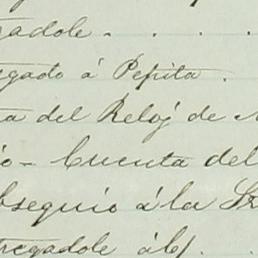 gadole - . . .
gado á Pepita .
a del Reloj de
o - Cuenta del
bsequio á la
tregadole á